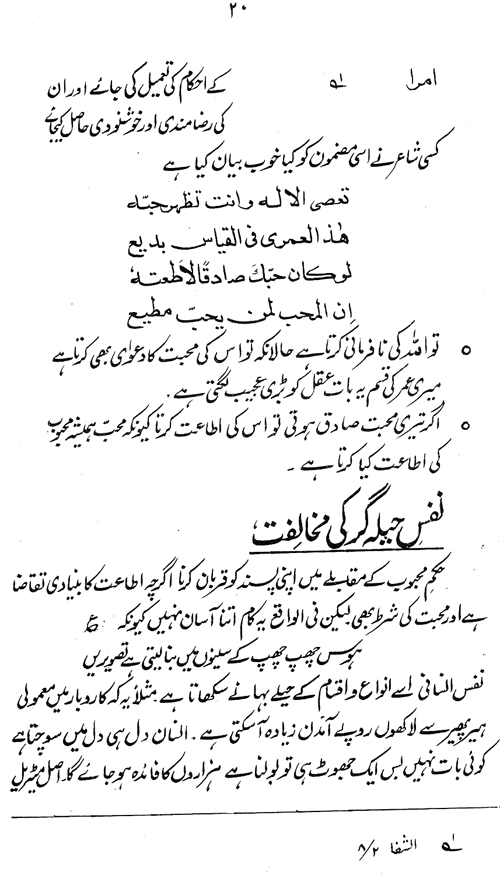 ۲۰
امرا ؎۱ کے احکام کی تعمیل کی جائے اور ان
کی رضامندی اور خوشنودی حاصل کیجائے
کسی شاعر نے اسی مضمون کو کیا خوب بیان کیا ہے
تعصی الالہ وانت تظھر حبّہ
ھٰذا لعمری فی القیاس بدیع
لوکان حبّك صادقًا لاطعتہٗ
اِن المحب لمن یحبّ مطیع
○ تو اللہ کی نافرمانی کرتا ہے حالانکہ تو اس کی محبت کا دعوٰی بھی کرتا ہے
میری عمر کی قسم یہ بات عقل کو بڑی عجیب لگتی ہے۔
○ اگر تیری محبت صادق ہوتی تو اس کی اطاعت کرتا کیونکہ محبّ ہمیشہ محبوب
کی اطاعت کیا کرتا ہے ۔
نفسِ حیلہ گر کی مخالفت
حکمِ محبوب کے مقابلے میں اپنی پسند کو قربان کرنا اگرچہ اطاعت کا بنیادی تقاضا
ہے اور محبت کی شرط بھی لیکن فی الواقع یہ کام اتنا آسان نہیں کیونکہ ؏
ہوس چھپ چھپ کے سینوں میں بنا لیتی ہے تصویریں
نفس انسانی اسے انواع و اقسام کے حیلے بہانے سکھاتا ہے مثلاً یہ کہ کاروبار میں معمولی
ہیر پھیر سے لاکھوں روپے آمدن زیادہ آسکتی ہے ۔ انسان دل ہی دل میں سوچتا ہے
کوئی بات نہیں بس ایک جھوٹ ہی تو بولنا ہے ہزاروں کا فائدہ ہو جائے گا۔ اصل میٹریل
؎۱ الشفا ۸/۲